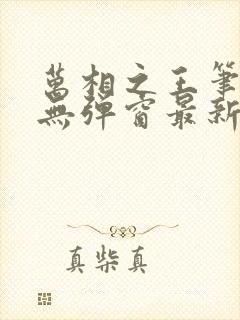 萬相之王筆
無彈窗最新
真柴真